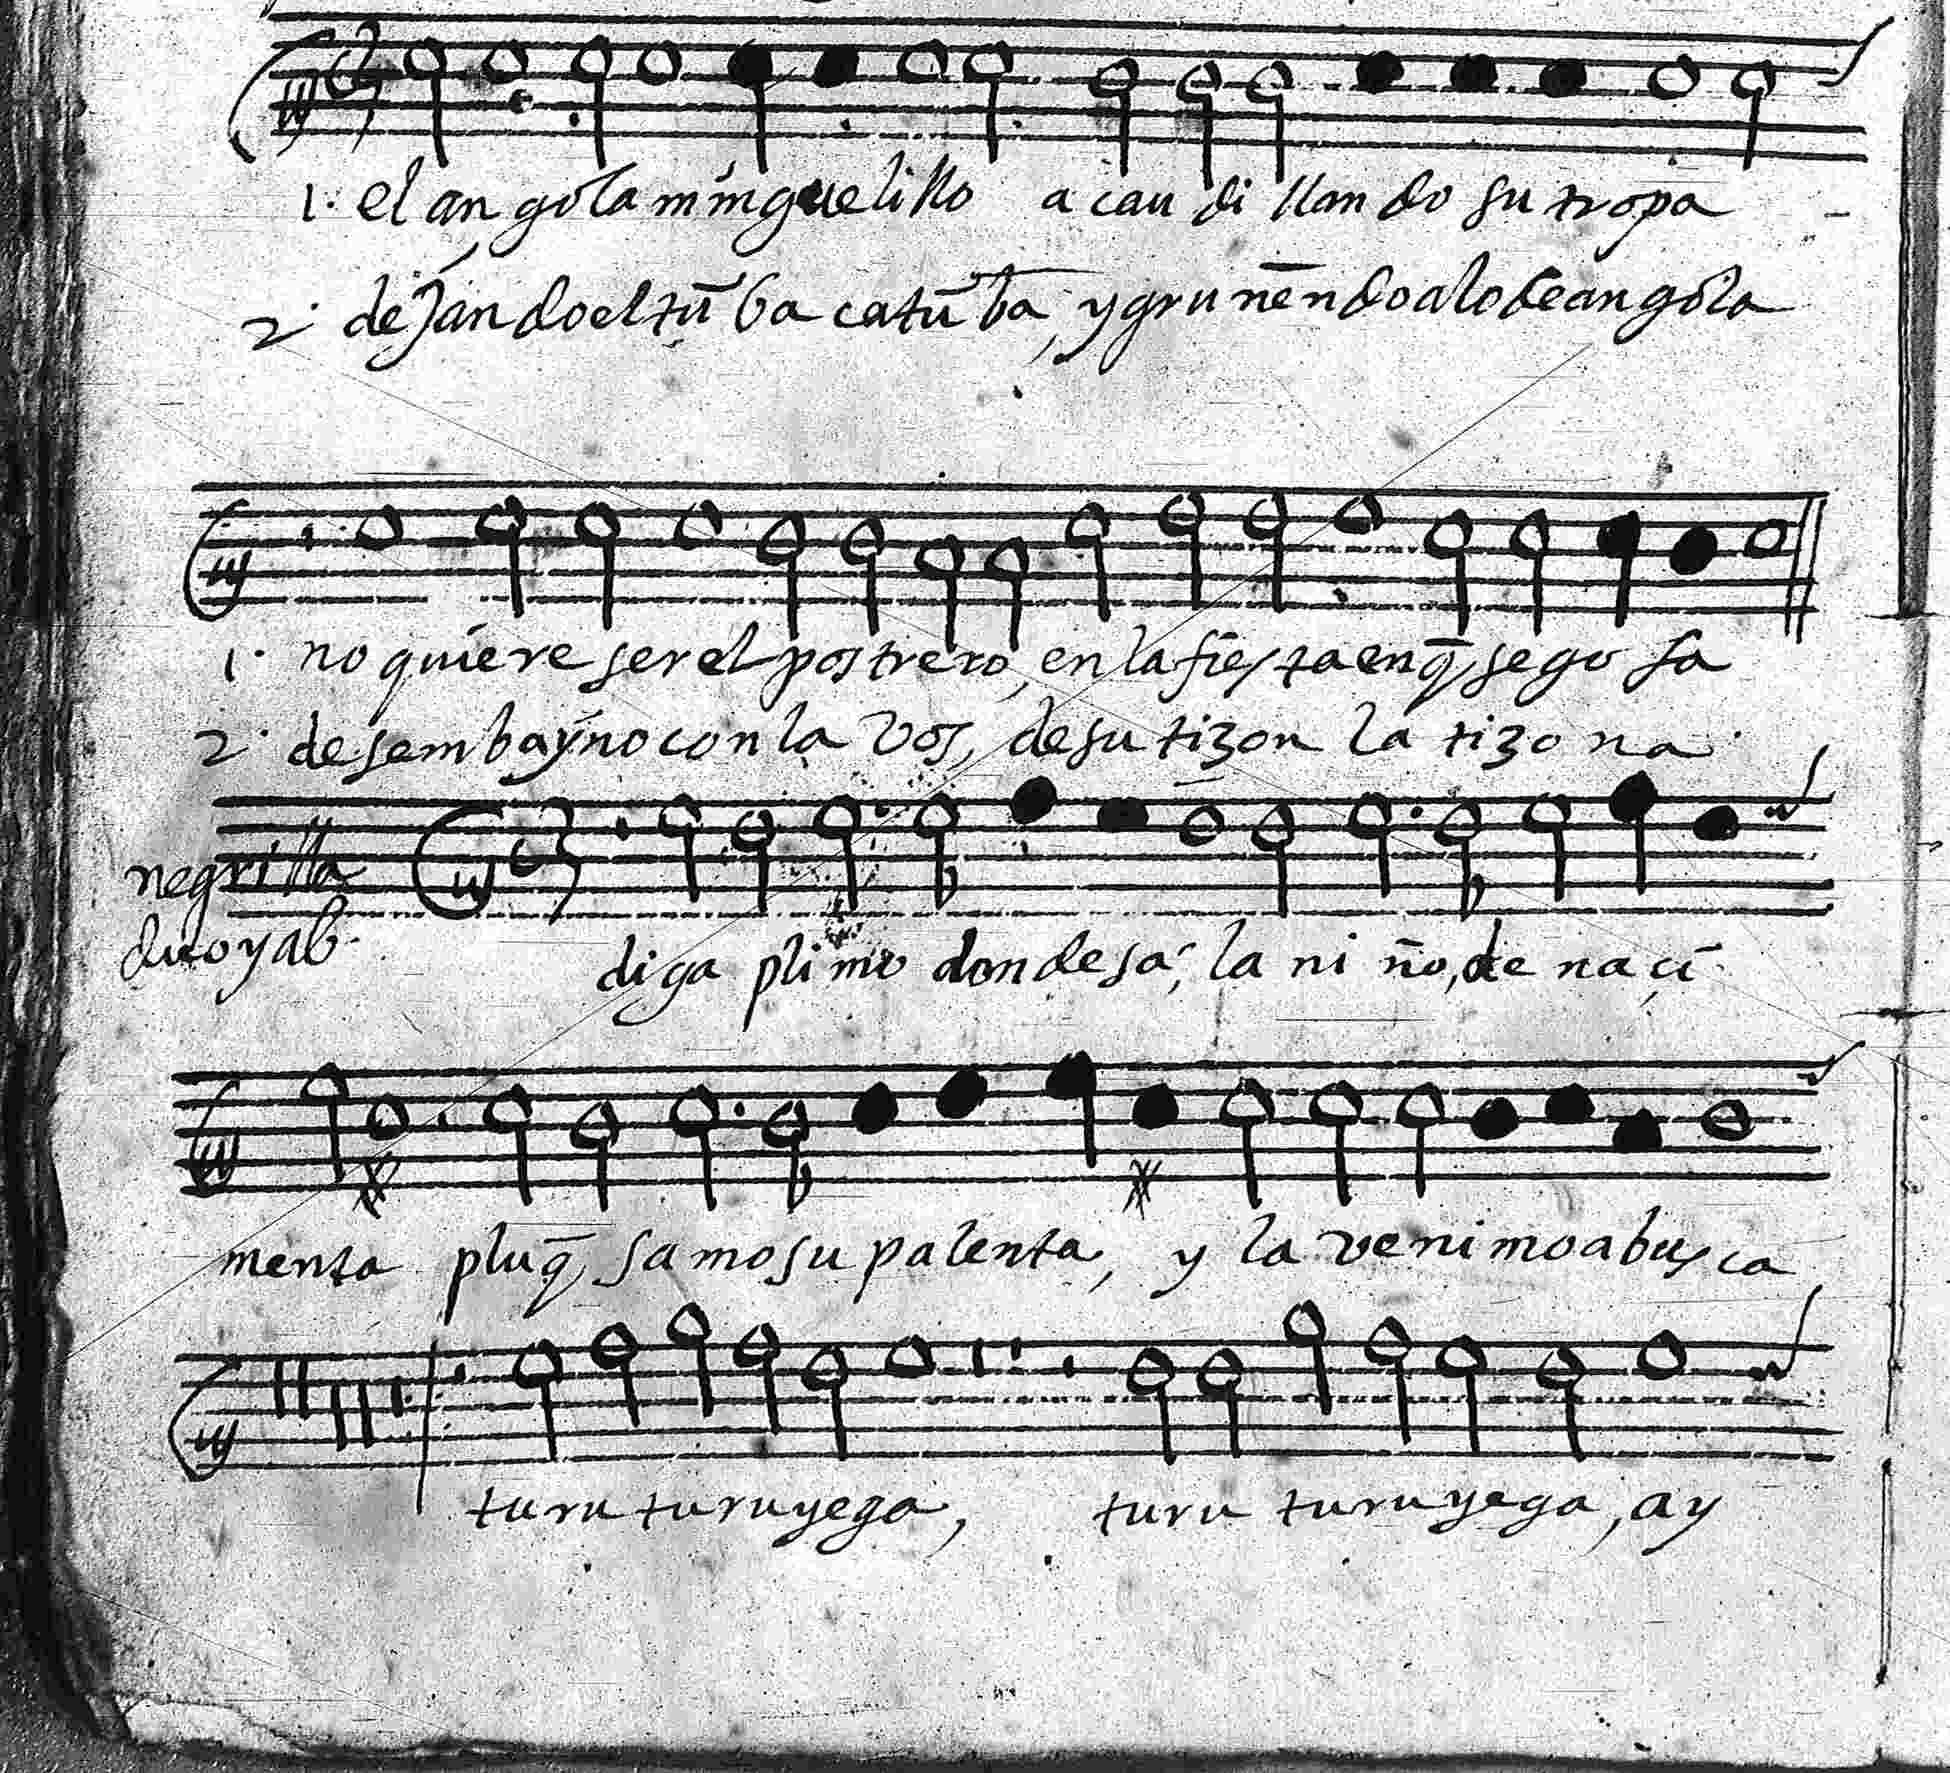 1. el angola minguelillo acaudillando su tropa
2. dejando el tūba catūba, y gruñendo a lo de angola
1. no quiere ser el postrero, en la fiesta en q̄ se gosa
2. desembayno con la vos, de su tizon la tizona.
negrilla
duo y a 6.
diga plimo donde sa, la niño, de naçi
menta pluq̄ samo su palenta, y la venimo a busca
turu turu yega, turu turu yega, ay